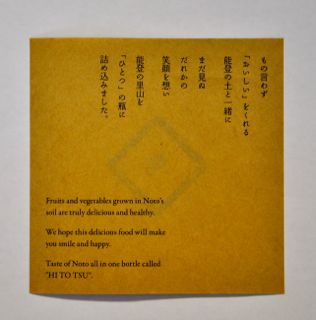 もの言わず
「おいしい」をくれる
能登の土と一緒に
まだ見ぬ
だれかの
笑顔を想い
能登の里山を
「ひとつ」の瓶に
詰め込みました。
Fruits and vegetables grown in Noto's
soil are truly delicious and healthy.
We hope this delicious food will make
you smile and happy.
Taste of Noto all in one bottle called
"HI TO TSU".